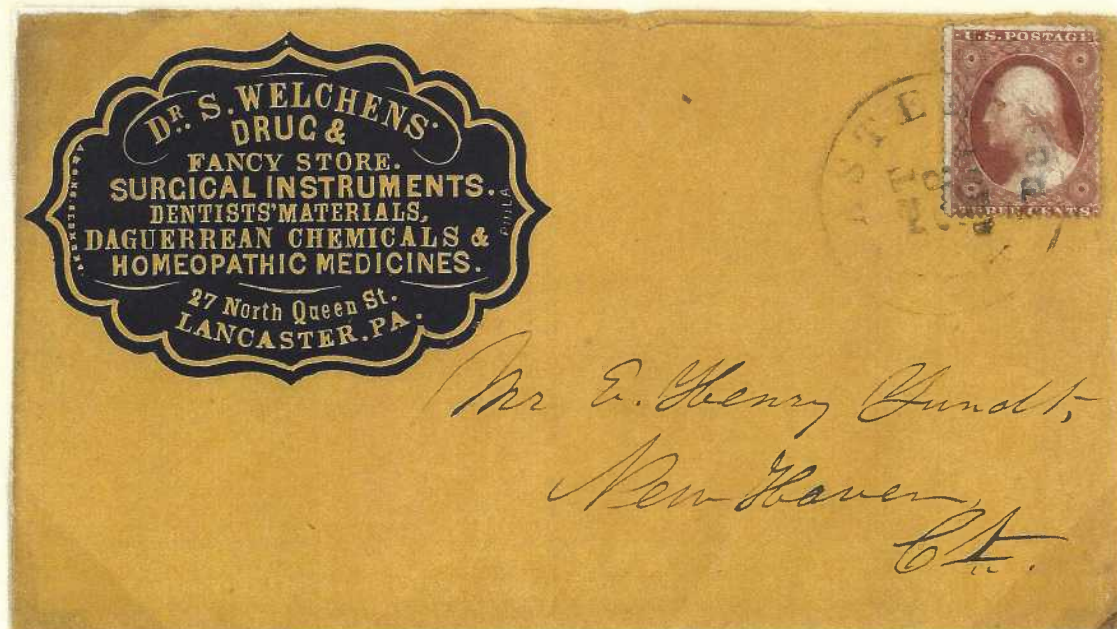 DR. S. WELCHENS'
DRUG &
FANCY STORE.
SURGICAL INSTRUMENTS.
DENTISTS' MATERIALS,
DAGUERREAN CHEMICALS &
HOMEOPATHIC MEDICINES.
27 North Queen St.
LANCASTER, PA.
PHILA
U.S. POSTAGE
CENTS
Mr E. Henry Yundt,
New Haven,
Ct.